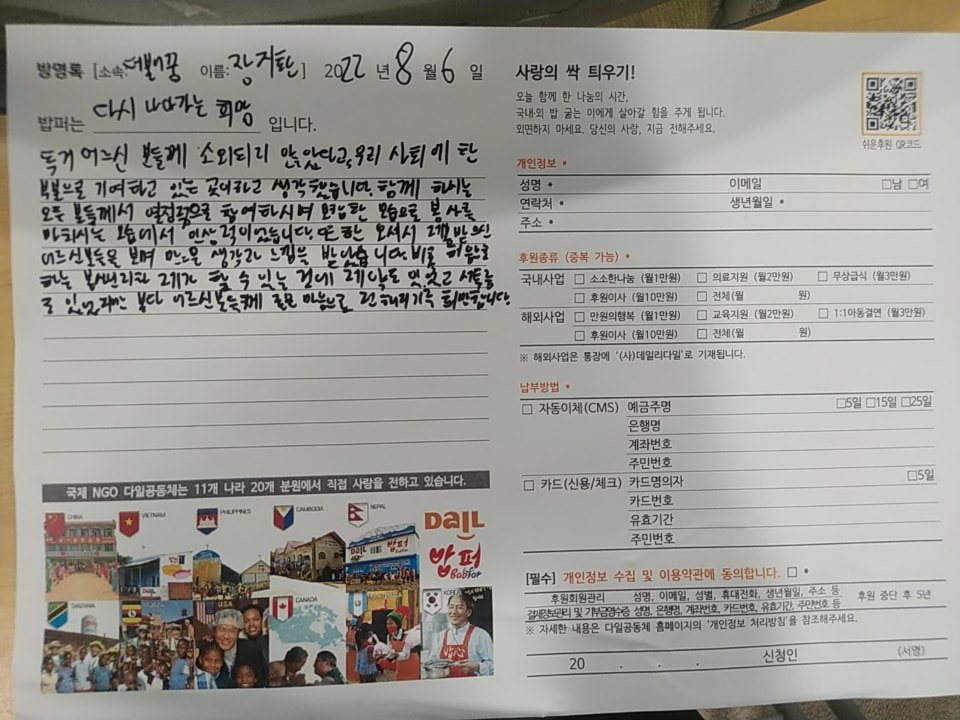 방명록 [소속: 이름: ] 2022 년 8 월 6 일
밥퍼는 다시 나아가는 희망 입니다.
독거 어느신 분들께 소외되리 안 았다고, 우리 사회에 한
부분으로 기여하고 있는 곳이라고 생각했습니다. 함께 하시는
모든 분들께서 열집적으로 참여하시며 화합한 모습으로 봉사를
마치시는 모습에서 인상적이었습니다. 또한 오셔서 받으신
어느신분들을 보며 많은 생각과 느낌을 받았습니다. 비록 처음으로
하는 봉사인리라 제가 할 수 있는 것에 제약도 있었고 서툴
수 있었지만 보다 어느신분들께 좋은 마음으로 전해리기를 희망합니다.
국제 NGO 다일공동체는 11개 나라 20개 분원에서 직접 사랑을 전하고 있습니다.
CHINA
VIETNAM
PHILIPPINES
CAMBODIA
NEPAL
DaiL
밥퍼
Babfor
TANZANIA
USA
CANADA
KOREA
사랑의 싹 틔우기!
오늘 함께 한 나눔의 시간,
국내·외 밥 굶는 이에게 살아갈 힘을 주게 됩니다.
외면하지 마세요. 당신의 사랑, 지금 전해주세요.
쉬운후원 QR코드
개인정보 •
성명 • 이메일 □남 □여
연락처 • 생년월일 •
주소 •
후원종류 (중복 가능) •
국내사업 □ 소소한나눔 (월1만원) □ 의료지원 (월2만원) □ 무상급식 (월3만원)
□ 후원이사 (월10만원) □ 전체(월 원)
해외사업 □ 만원의행복 (월1만원) □ 교육지원 (월2만원) □ 1:1아동결연 (월3만원)
□ 후원이사 (월10만원) □ 전체(월 원)
※ 해외사업은 통장에 '(사)데일리다일'로 기재됩니다.
납부방법 •
□ 자동이체(CMS) 예금주명 □5일 □15일 □25일
은행명
계좌번호
주민번호
□ 카드(신용/체크) 카드명의자 □5일
카드번호
유효기간
주민번호
[필수] 개인정보 수집 및 이용약관에 동의합니다. □ •
후원회원관리 성명, 이메일, 성별, 휴대전화, 생년월일, 주소 등 후원 중단 후 5년
결제정보관리 및 기부금영수증 성명, 은행명, 계좌번호, 카드번호, 유효기간, 주민번호 등
※ 자세한 내용은 다일공동체 홈페이지의 '개인정보 처리방침'을 참조해주세요.
20 . . . 신청인 (서명)